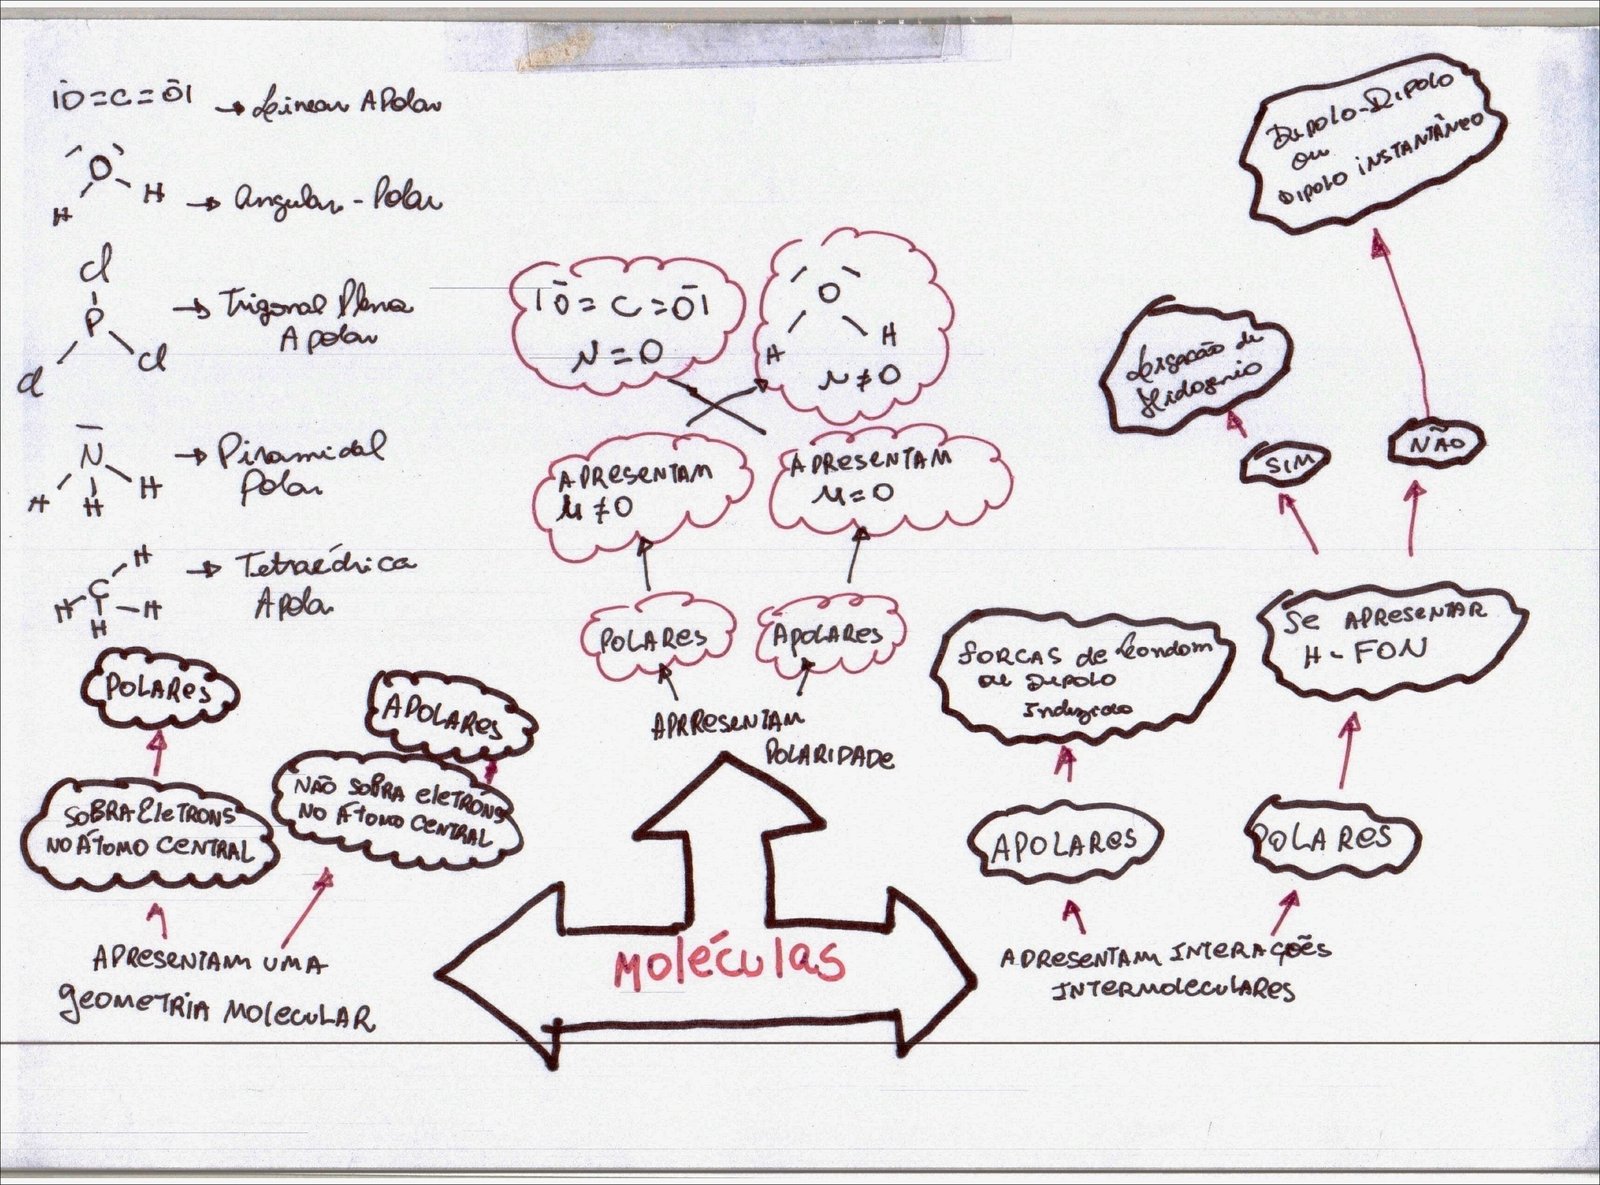 |O=C=O|
→ Linear Apolar
O
H
H
→ Angular - Polar
Cl
P
Cl
Cl
→ Trigonal Plana
Apolar
N
H
H
H
→ Piramidal
Polar
H
C
H
H
H
→ Tetraédrica
Apolar
POLARES
APOLARES
SOBRA Eletrons
NO ÁTOMO CENTRAL
NÃO SOBRA eletróns
NO ÁTOMO CENTRAL
APRESENTAM UMA
geometria MOLECULAR
|O=C=O|
μ=O
O
H
H
μ≠O
APRESENTAM
μ≠O
APRESENTAM
μ=O
POLARES
APOLARES
APRRESENTAM
POLARIDADE
moléculas
DIPOLO-DIPOLO
ou
DIPOLO INSTANTÂNEO
Ligação de
Hidogenio
SIM
NÃO
FORCAS de Londom
ou DIPOLO
Induzido
Se APRESENTAR
H-FON
APOLARES
POLARES
APRESENTAM INTERAÇÕES
INTERMOLECULARES